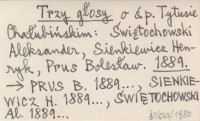 Trzy głosy o ś.p. Tytusie
Chałubińskim: Świętochowski
Aleksander, Sienkiewicz Hen-
ryk, Prus Bolesław. 1889.
→ PRUS B. 1889..., SIENKIE-
WICZ H. 1889..., ŚWIĘTOCHOWSKI
Al. 1889...
1980